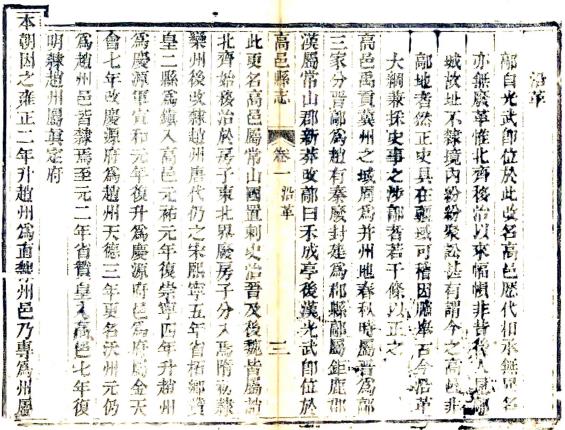 沿革
鄗自光武卽位於此改名高邑歷代相承無異名
亦無廢革惟北齊移治以來幅幀非昔後人
城故址不隸境內紛紛聚訟甚有謂今之高邑非
鄗地者然正史具在域可稽因舉古今沿革
大綱兼採史事之涉鄗者若干條以正之
高邑禹貢冀州之域周爲并州地春秋時屬晉爲鄗
三家分晉鄗爲趙有秦廢封建爲郡縣鄗屬鉅鹿郡
漢屬常山郡新莽改鄗曰禾成亭後漢光武卽位於
高邑縣志 卷一 沿革 三
此更名高邑屬常山國置刺史治晉及後魏皆屬趙
北齊始移治於房子東北界廢房子分入焉隋初隸
欒州後改隸趙州唐代仍之宋熙寧五年省柏鄉贊
皇二縣爲鎮入高邑元祐元年復崇寧四年升趙州
爲慶源軍宣和元年復升爲慶源府邑爲府屬金天
會七年改慶源府爲趙州天德三年更名沃州元仍
爲趙州邑皆隸焉至元二年省贊皇入高邑七年復
明隸趙州屬眞定府
本朝因之雍正二年升趙州爲直隸州邑乃專爲州屬